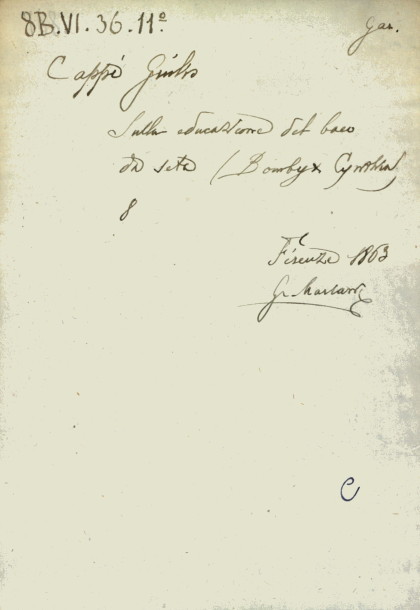 8B.VI.36.11º
Gar.
Cappi Giulio
Sulla educazione del baco
da seta (Bombyx Cynthia)
8
Firenze 1863
G. Mariani
C